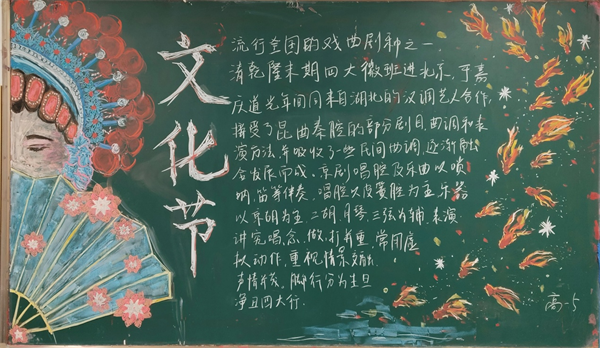 文化节
流行全国的戏曲剧种之一
清乾隆末期四大徽班进北京，于嘉
庆道光年间同来自湖北的汉调艺人合作，
接受了昆曲秦腔的部分剧目，曲调和表
演方法，并吸收了一些民间曲调，逐渐融
合发展而成。京剧唱腔及乐曲以唢
呐，笛等伴奏，唱腔以及要腔为主，乐器
以京胡为主，二胡，月琴，三弦为辅，表演
讲究唱，念，做，打并重，常用虚
拟动作，重视情景交融，
声情并茂，脚行分为生旦
净丑四大行.
高一5